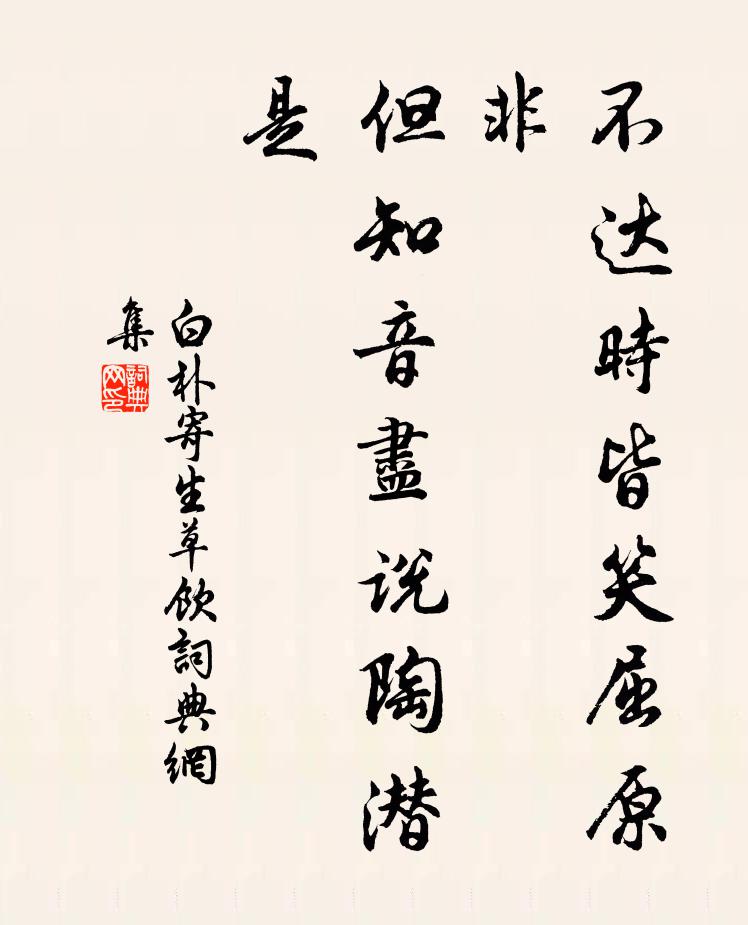 不达時皆笑屈原
非
但知音盡说陶潜
是
白朴寄生草飲詞典網
集
詞典
网印